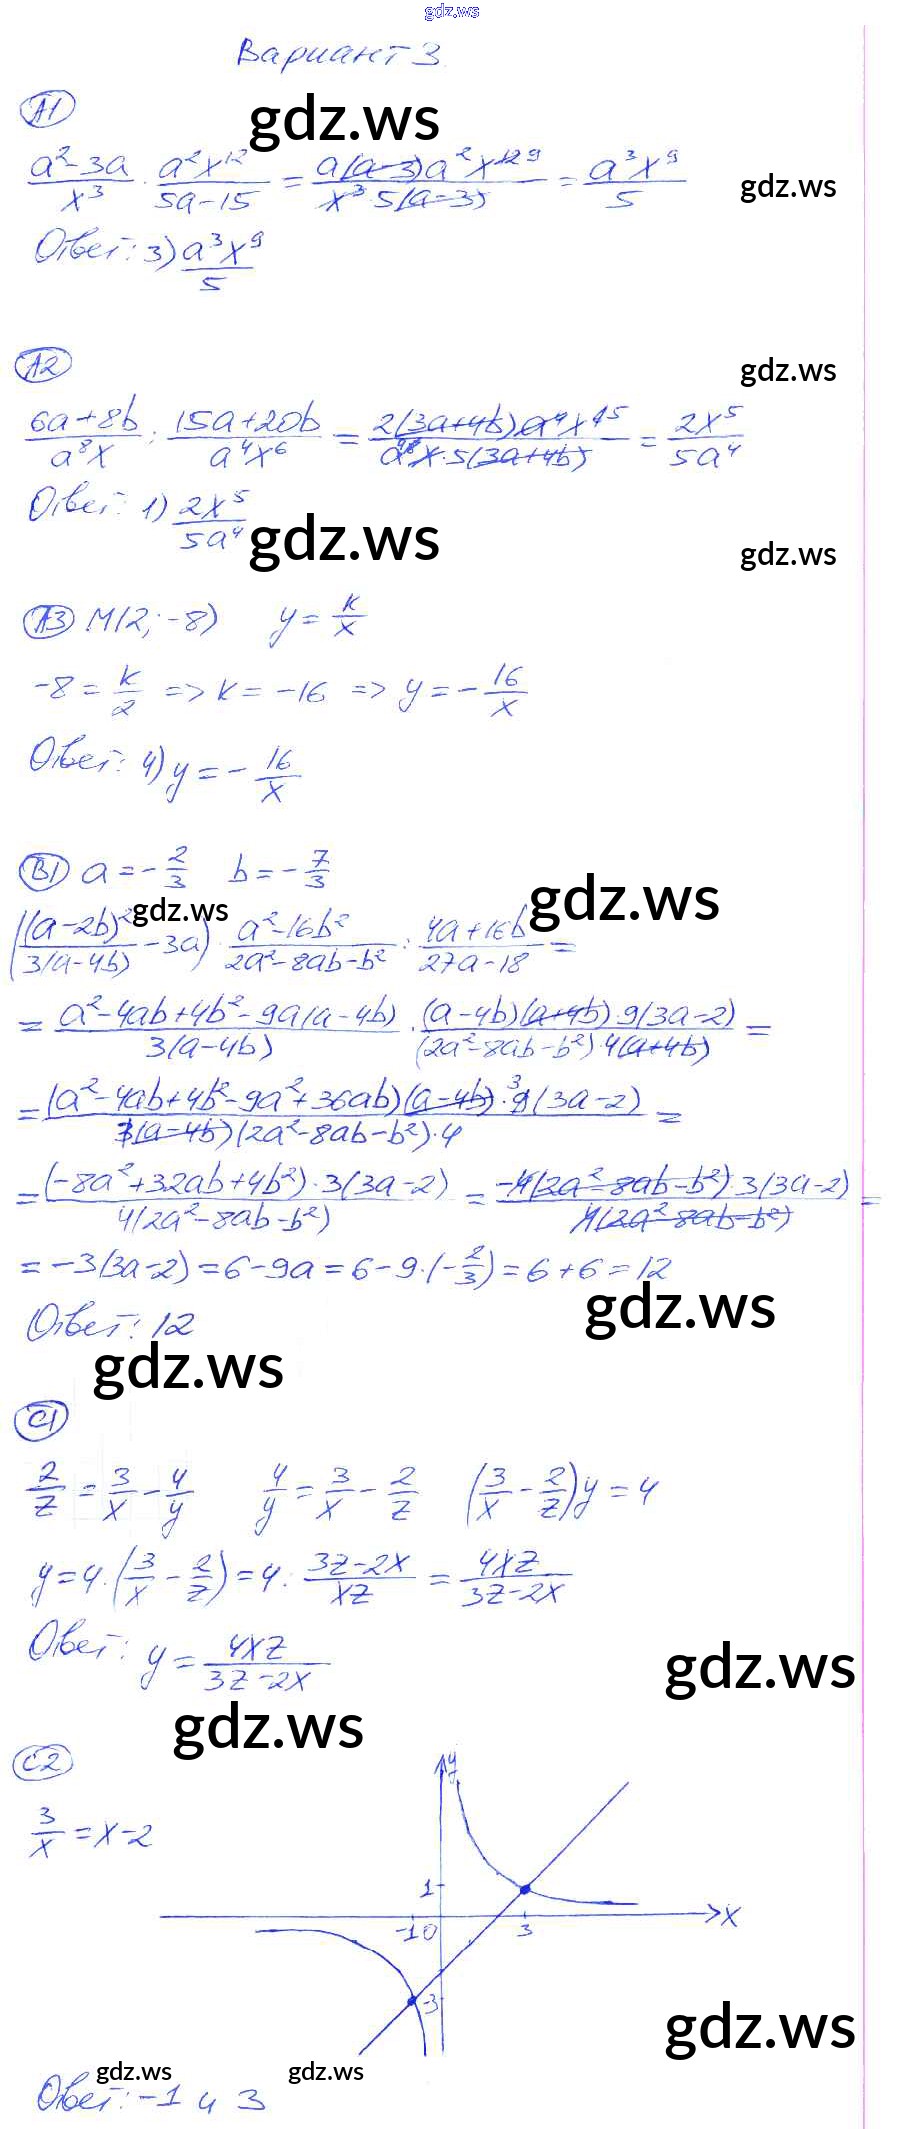 gdz.ws
Вариант 3
A1
gdz.ws
(a² - 3a)/x³ · a²x¹²/(5a - 15) = a(a-3)a²x¹² ⁹/(x³·5(a-3)) = a³x⁹/5
gdz.ws
Ответ: 3) a³x⁹/5
A2
gdz.ws
(6a+8b)/(a⁸x) : (15a+20b)/(a⁴x⁶) = 2(3a+4b)a⁴x⁶ ⁵/(a⁸ ⁴x·5(3a+4b)) = 2x⁵/(5a⁴)
Ответ: 1) 2x⁵/(5a⁴)
gdz.ws
gdz.ws
A3 M(2; -8) y = k/x
-8 = k/2 => k = -16 => y = -16/x
Ответ: 4) y = -16/x
B1 a = -2/3 b = -7/3
gdz.ws
gdz.ws
((a-2b)²/(3(a-4b)) - 3a) · (a²-16b²)/(2a²-8ab-b²) : (4a+16b)/(27a-18) =
= (a²-4ab+4b²-9a(a-4b))/(3(a-4b)) · (a-4b)(a+4b)9(3a-2)/((2a²-8ab-b²)4(a+4b)) =
= (a²-4ab+4b²-9a²+36ab)(a-4b)·³9(3a-2)/(3(a-4b)(2a²-8ab-b²)·4) =
= (-8a²+32ab+4b²)·3(3a-2)/(4(2a²-8ab-b²)) = -4(2a²-8ab-b²)·3(3a-2)/(4(2a²-8ab-b²)) =
= -3(3a-2) = 6-9a = 6-9·(-2/3) = 6+6 = 12
gdz.ws
Ответ: 12
gdz.ws
C1
2/z = 3/x - 4/y 4/y = 3/x - 2/z (3/x - 2/z)y = 4
y = 4·(3/x - 2/z) = 4 : (3z-2x)/(xz) = 4xz/(3z-2x)
Ответ: y = 4xz/(3z-2x)
gdz.ws
gdz.ws
C2
y
3/x = x-2
1
x
-1 0 3
-3
gdz.ws
gdz.ws gdz.ws
Ответ: -1 и 3